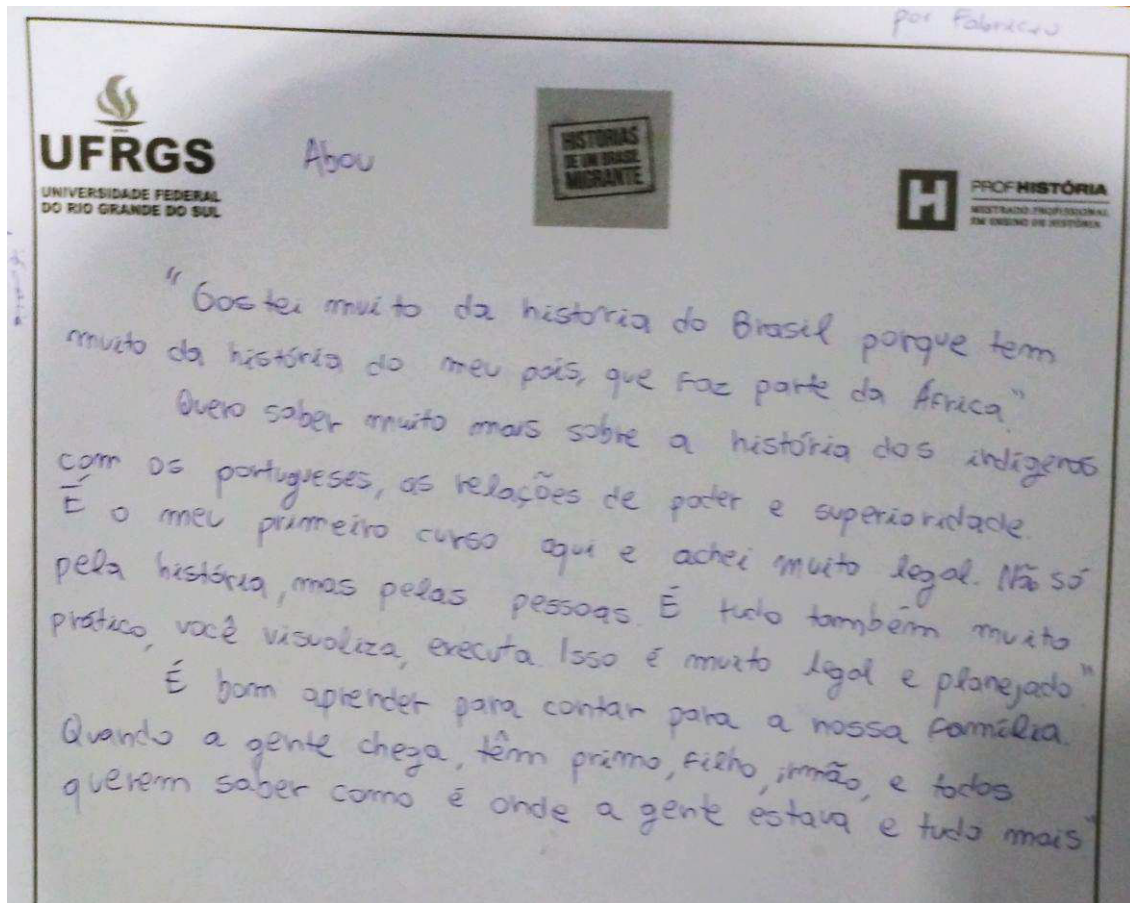 por Fabrício
UFRGS
UNIVERSIDADE FEDERAL
DO RIO GRANDE DO SUL
Abou
HISTÓRIAS
DE UM BRASIL
MIGRANTE
H
PROFHISTÓRIA
MESTRADO PROFISSIONAL
EM ENSINO DE HISTÓRIA
"Gostei muito da história do Brasil porque tem
muito da história do meu país, que faz parte da África"
Quero saber muito mais sobre a história dos indígenas
com os portugueses, as relações de poder e superioridade.
É o meu primeiro curso aqui e achei muito legal. Não só
pela história, mas pelas pessoas. É tudo também muito
prático, você visualiza, executa. Isso é muito legal e planejado"
É bom aprender para contar para a nossa família.
Quando a gente chega, têm primo, filho, irmão, e todos
querem saber como é onde a gente estava e tudo mais"